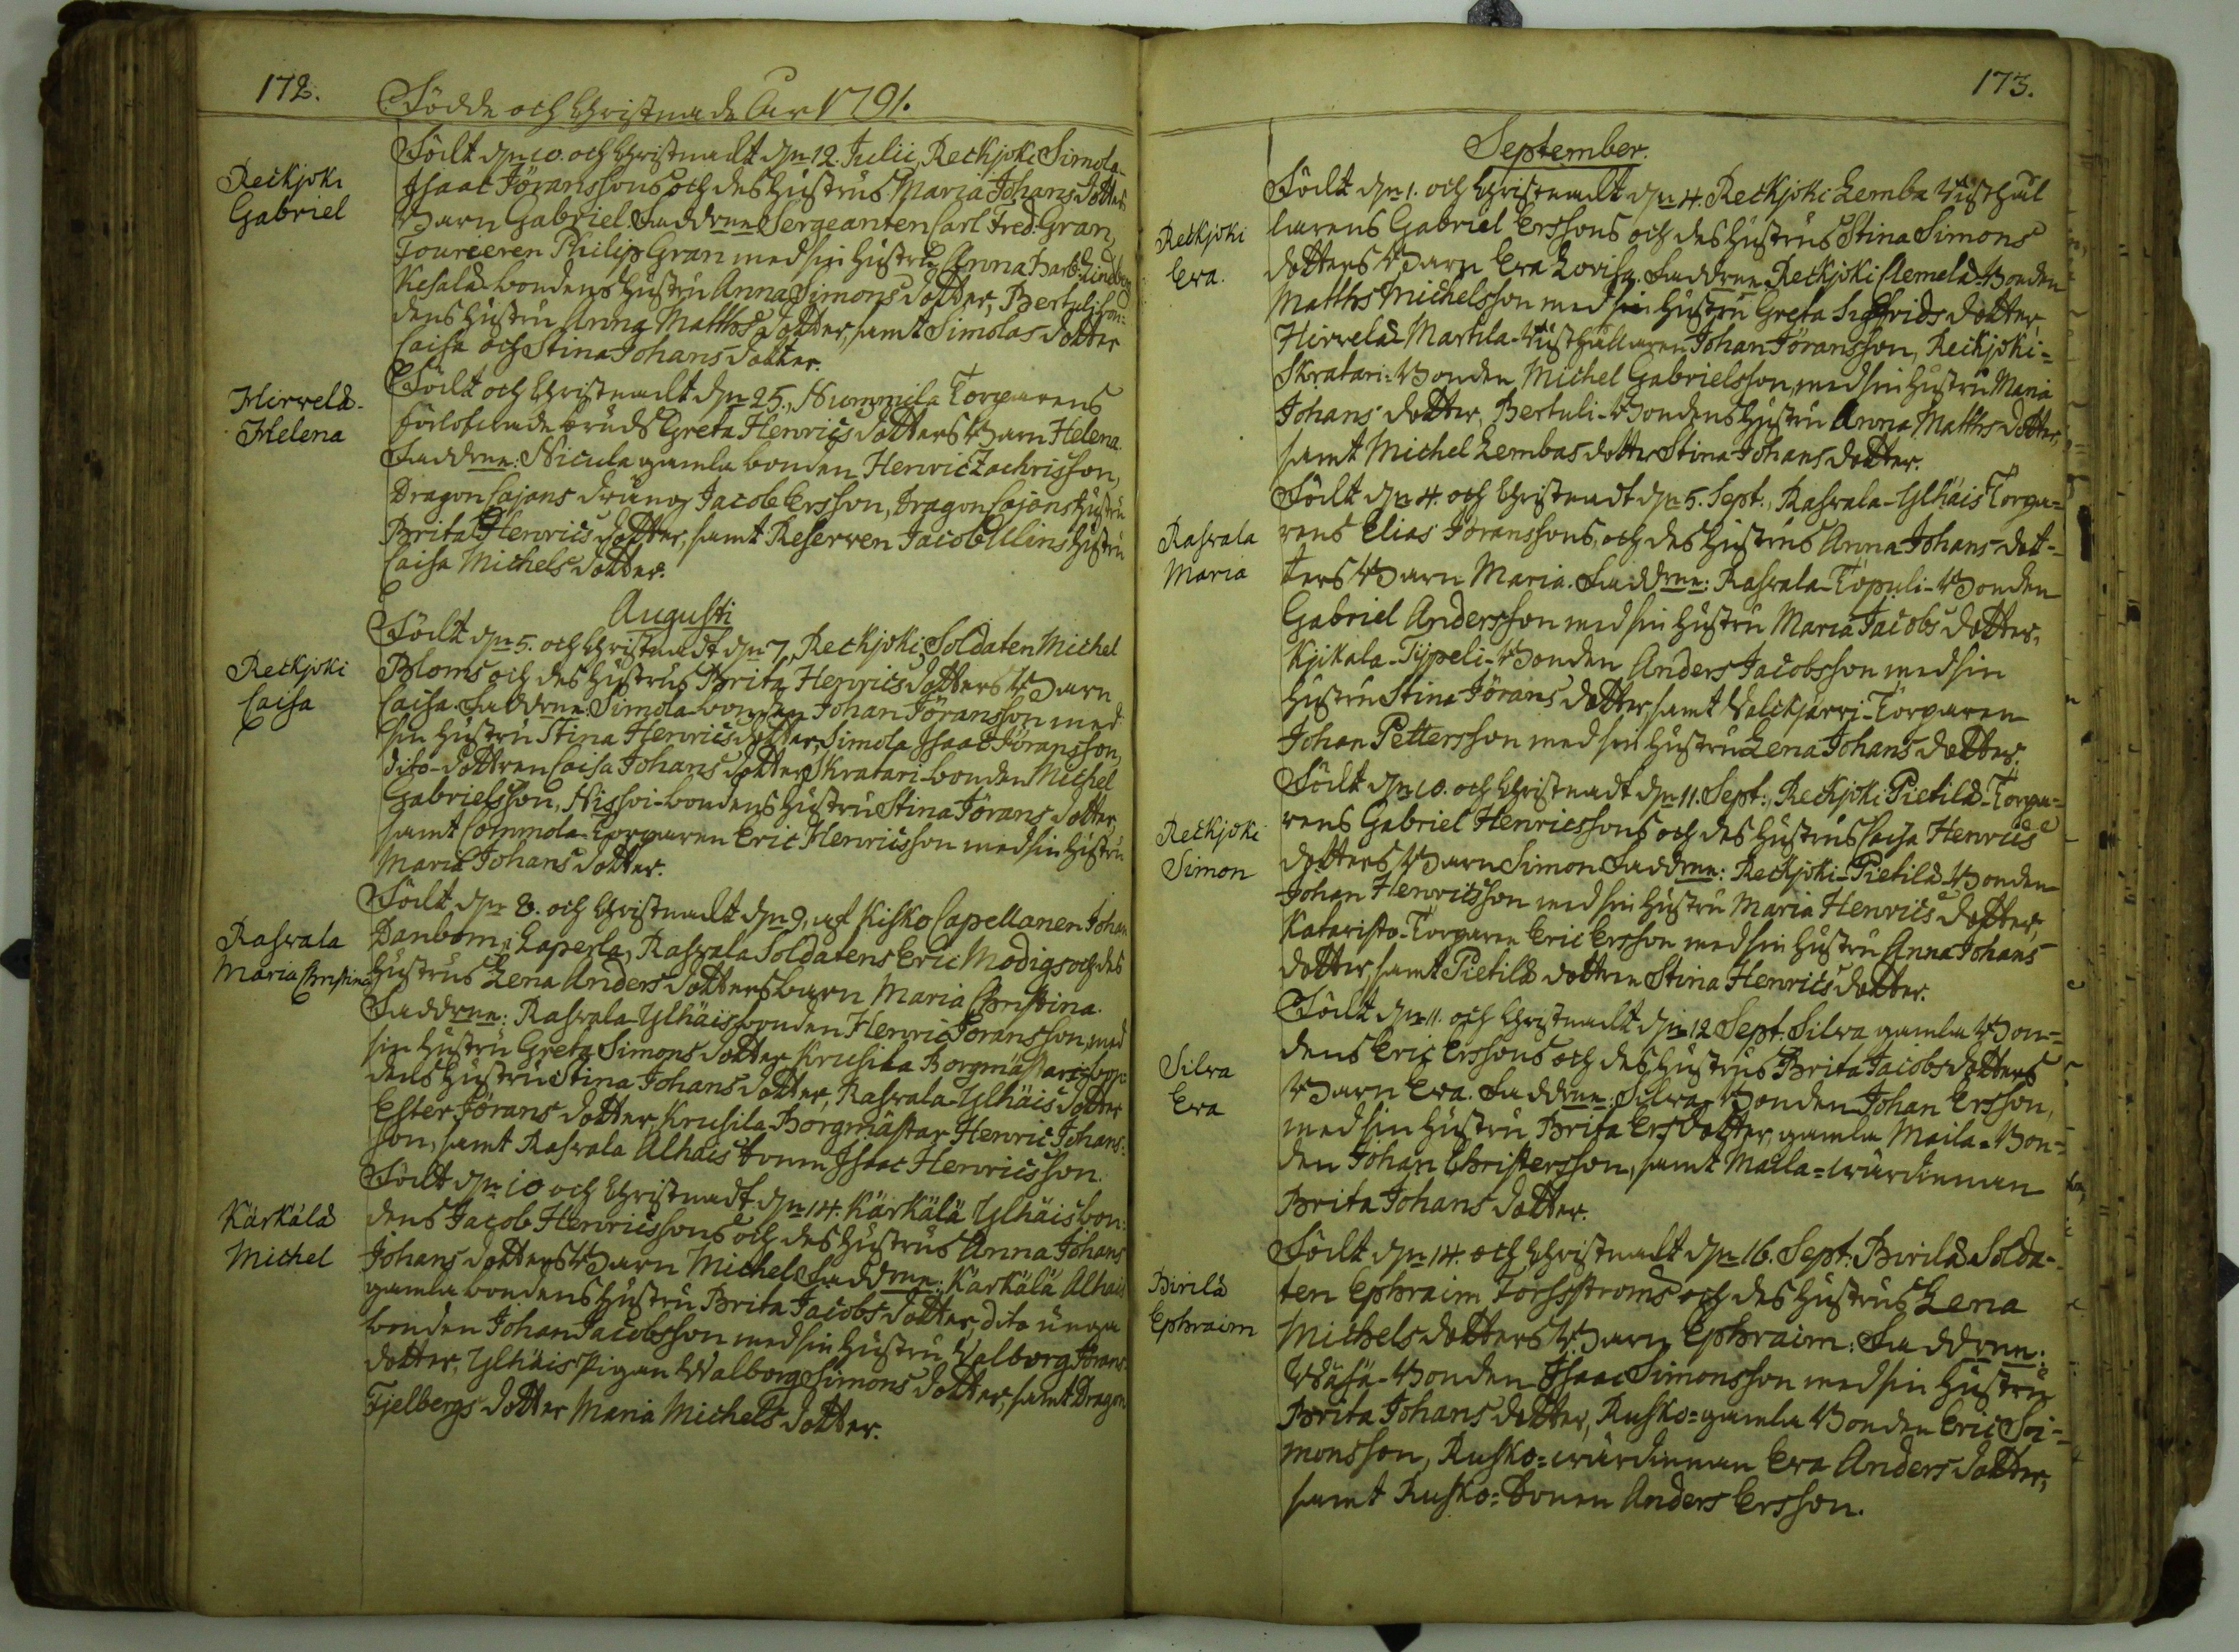 172.
Födde och Christnade Åar 1791.
Reckjoki
Gabriel
Födt d.n 10. och Christnadt d.n 12. Julii, Reckjoki Simola-
Isaac Jöranssons och des hustrus Maria Johans dotters
Barn Gabriel. Faddrne Sergeanten Carl Fred. Gran,
Foureeren Philip Gran med sin hustru Anna Barb. Lindberg
Kesalä-bondens hustru Anna Simons dotter, Bertuli bon-
dens hustru Anna Matths dotter, samt Simolas dotter
Caisa och Stina Johans dotter.
Hirvelä-
Helena
Födt och Christnadt d.n 25., Nummila Torparens
förlofvade bruds Greta Henrics dotters Barn Helena.
Faddrne: Nicula gamla bonden Henric Zachrisson,
Dragon Cajans dräng Jacob Ersson, Dragon Cajans hustru
Brita Henrics dotter, samt Reserven Jacob Ulins hustru
Caisa Michels dotter.
Augusti
Reckjoki
Caisa
Födt d.n 5. och Christnadt d.n 7, Reckjoki Soldaten Michel
Bloms och des hustrus Brita Henrics dotters Barn
Caisa. Faddrne: Simola-bonden Johan Jöransson med
sin hustru Stina Henrics dotter, Simola Isaac Jöransson,
dito-dottren Caisa Johans dotter, Skratari-bonden Michel
Gabrielsson, Nissoi-bondens hustru Stina Jörans dotter,
samt Commola-torparen Eric Henricsson med sin hustru
Maria Johans dotter.
Raswala
Maria Christina
Födt d.n 8. och Christnadt d.n 9, af Kisko Capellanen Johan
Danbom i Laperla, Raswala Soldatens Eric Modigs och des
hustrus Lena Anders dotters barn Maria Christina.
Faddrne: Raswala-Ylhäis bonden Henric Jöransson, med
sin hustru Greta Simons dotter, Krusila Borgmästars bon-
dens hustru Stina Johans dotter, Raswala-Ylhäis dotter
Ester Jörans dotter, Krusila-Borgmästar Henric Johans-
son, samt Raswala Alhais sonen Isaac Henricsson.
Kärkälä
Michel
Födt d.n 10 och Christnadt d.n 14. Kärkälä Ylhäis bon-
dens Jacob Henricssons och des hustrus Anna Johans
Johans dotters Barn Michel. Faddrne: Kärkälä Alhais
gamla bondens hustru Brita Jacobs dotter, dito unga
bonden Johan Jacobsson med sin hustru Valborg Jörans
dotter, Ylhäis Pigan Walborg Simons dotter, samt Dragon
Fjelbergs dotter Maria Michels dotter.
173.
September.
Reckjoki
Eva.
Födt d.n 1. och Christnadt d.n 4. Reckjoki Lemba Rusthål
larens Gabriel Erssons och des hustrus Stina Simons
dotters Barn Eva Lovisa. Faddrne: Reckjoki Clemelä-Bonden
Matths Michelsson med sin hustru Greta Sigfrids dotter,
Hirvelä Martila-Rusthållaren Johan Jöransson, Reckjoki-
Skratari-Bonden Michel Gabrielsson, med sin hustru Maria
Johans dotter, Bertuli-Bondens hustru Anna Matths dotter,
samt Michel Lembas dotter Stina Johans dotter.
Raswala
Maria
Födt d.n 4. och Christnadt d.n 5. Sept., Raswala-Ylhäis Torpa-
rens Elias Jöranssons, och des hustrus Anna Johans dot-
ters Barn Maria. Faddrne: Raswala-Töpuli-Bonden
Gabriel Andersson med sin hustru Maria Jacobs dotter,
Kjikala-Typpeli-Bonden Anders Jacobsson med sin
hustru Stina Jörans dotter, samt Valckjärvi-Torparen
Johan Pettersson med sin hustru Lena Johans dotter.
Reckjoki
Simon
Födt d.n 10. och Christnadt d.n 11. Sept., Reckjoki Pietilä-Torpa-
rens Gabriel Henricssons och des hustrus Caisa Henrics
dotters Barn Simon. Faddrne: Reckjoki-Pietilä-Bonden
Johan Henricsson med sin hustru Maria Henrics dotter,
Kataristo-Torparen Eric Ersson med sin hustru Anna Johans
dotter, samt Pietilä dottren Stina Henrics dotter.
Silva
Eva
Födt d.n 11. och Christnadt d.n 12 Sept. Silva gamla Bon-
dens Eric Erssons och des hustrus Brita Jacobs dotters
Barn Eva. Faddrne: Silva-Bonden Johan Ersson,
med sin hustru Brita Ers dotter, gamla Maila-Bon-
den Johan Christersson, samt Maila-wärdinnan
Brita Johans dotter.
Pirilä
Ephraim
Födt d.n 14. och Christnadt d.n 16. Sept. Pirilä Solda-
ten Ephraim Forsströms och des hustrus Lena
Michels dotters Barn Ephraim: Faddrne:
Wäsä-Bonden Isaac Simonsson med sin hustru
Brita Johans dotter, Rusko-gamla Bonden Eric Si-
monsson, Rusko-wärdinnan Eva Anders dotter,
samt Rusko-Sonen Anders Ersson.